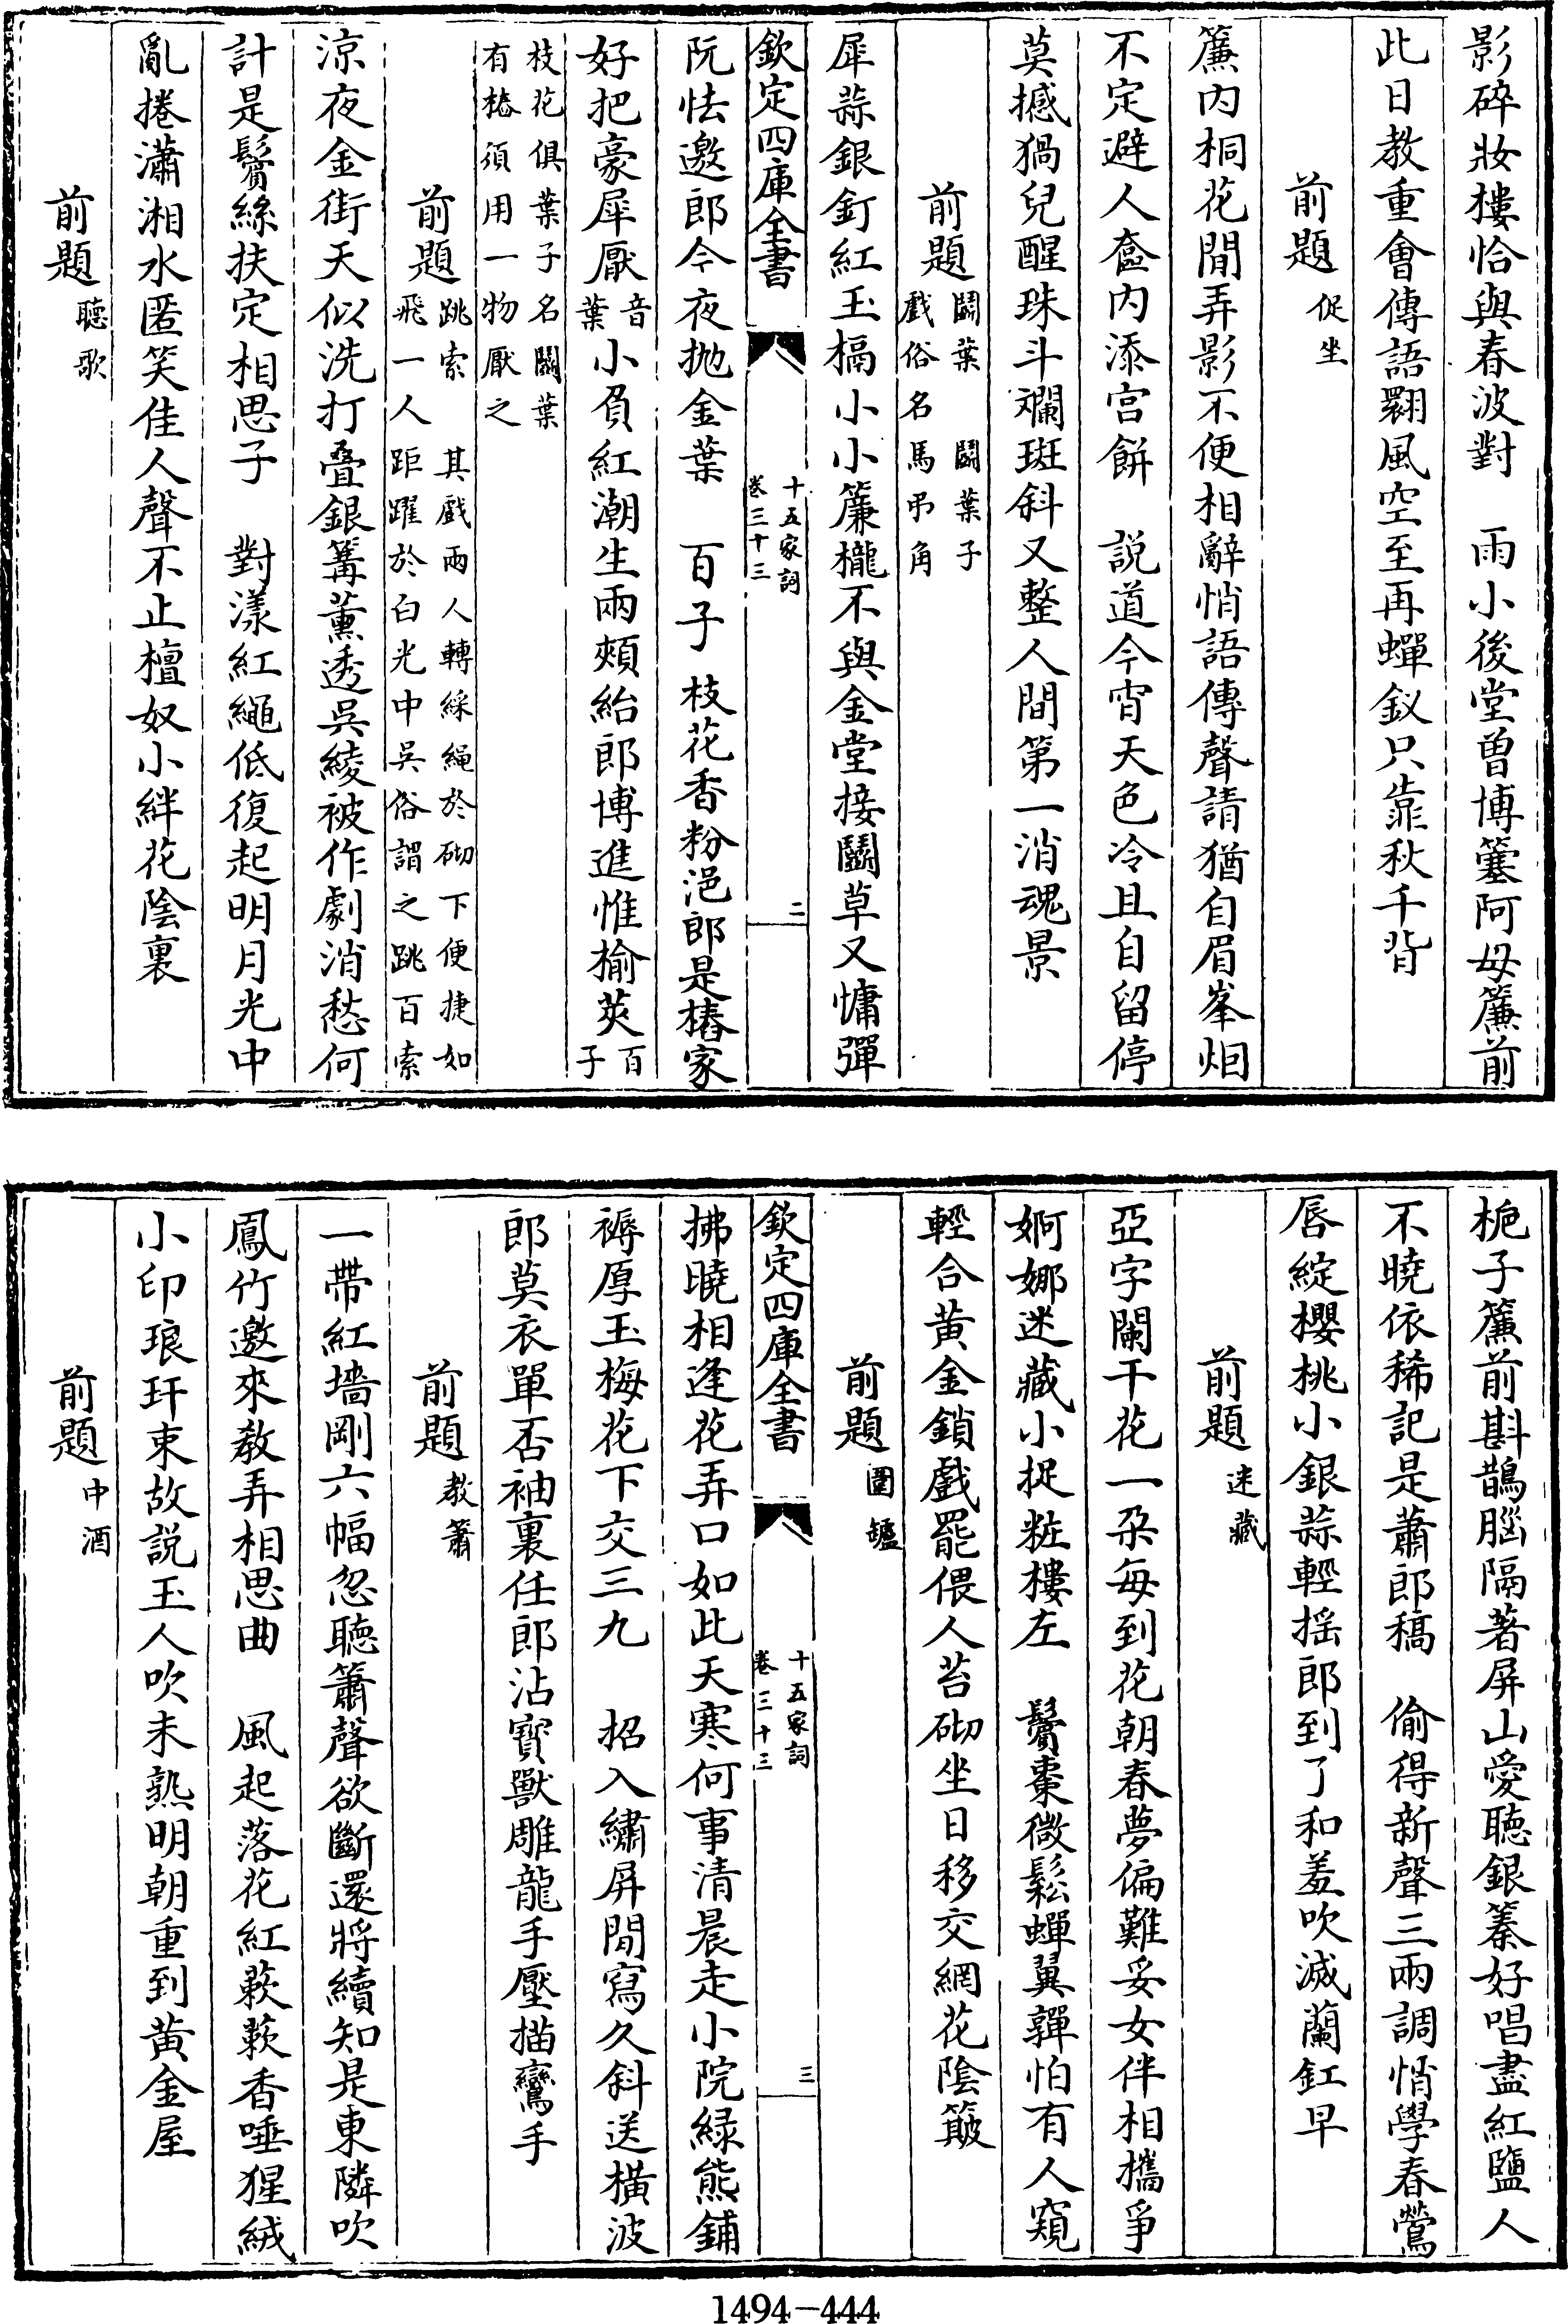 影碎妝樓恰與春波對　雨小後堂曾博簺阿母簾前
此日教重會傳語翾風空至再蟬釵只靠秋千背
前題促坐
簾内桐花閒弄影不便相辭悄語傳聲請猶自眉峯烟
不定避人奩内添宮餅　説道今宵天色冷且自留停
莫撼猧兒醒珠斗斕斑斜又整人間第一消魂景
前題鬬葉　鬬葉子戯俗名馬弔角
犀蒜銀釘紅玉槅小小簾櫳不與金堂接鬬草又慵彈
欽定四庫全書
十五家詞
卷三十三
二
阮怯邀郎今夜拋金葉　百子　枝花香粉浥郎是樁家
好把豪犀厭音葉小負紅潮生兩頰紿郎博進惟榆莢百子
枝花俱葉子名鬬葉有樁須用一物厭之
前題跳索　其戲兩人轉綵繩於砌下便捷如飛一人距躍於白光中吳俗謂之跳百索
涼夜金街天似洗打疊銀篝薰透吳綾被作劇消愁何
計是鬢絲扶定相思子　對漾紅繩低復起明月光中
亂捲瀟湘水匿笑佳人聲不止檀奴小絆花陰裏
前題聽歌
梔子簾前斟鵲腦隔著屏山愛聽銀箏好唱盡紅鹽人
不曉依稀記是蕭郎稿　偷得新聲三兩調悄學春鶯
唇綻櫻桃小銀蒜輕揺郎到了和羞吹滅蘭釭早
前題迷藏
亞字闌干花一朶每到花朝春夢偏難妥女伴相攜爭
婀娜迷藏小捉粧樓左　鬢棗微鬆蟬翼嚲怕有人窺
輕合黄金鎖戲罷偎人苔砌坐日移交網花陰簸
前題圍罏
欽定四庫全書
十五家詞
卷三十三
三
拂曉相逢花弄口如此天寒何事清晨走小院緑熊鋪
褥厚玉梅花下交三九　招入繡屏閒寫久斜送横波
郎莫衣單否袖裏任郎沾寳獸雕龍手壓描鸞手
前題教簫
一帶紅墻剛六幅忽聽簫聲欲斷還將續知是東隣吹
鳳竹邀來教弄相思曲　風起落花紅蔌蔌香唾猩絨
小印琅玕束故説玉人吹未熟明朝重到黄金屋
前題中酒
1494-444